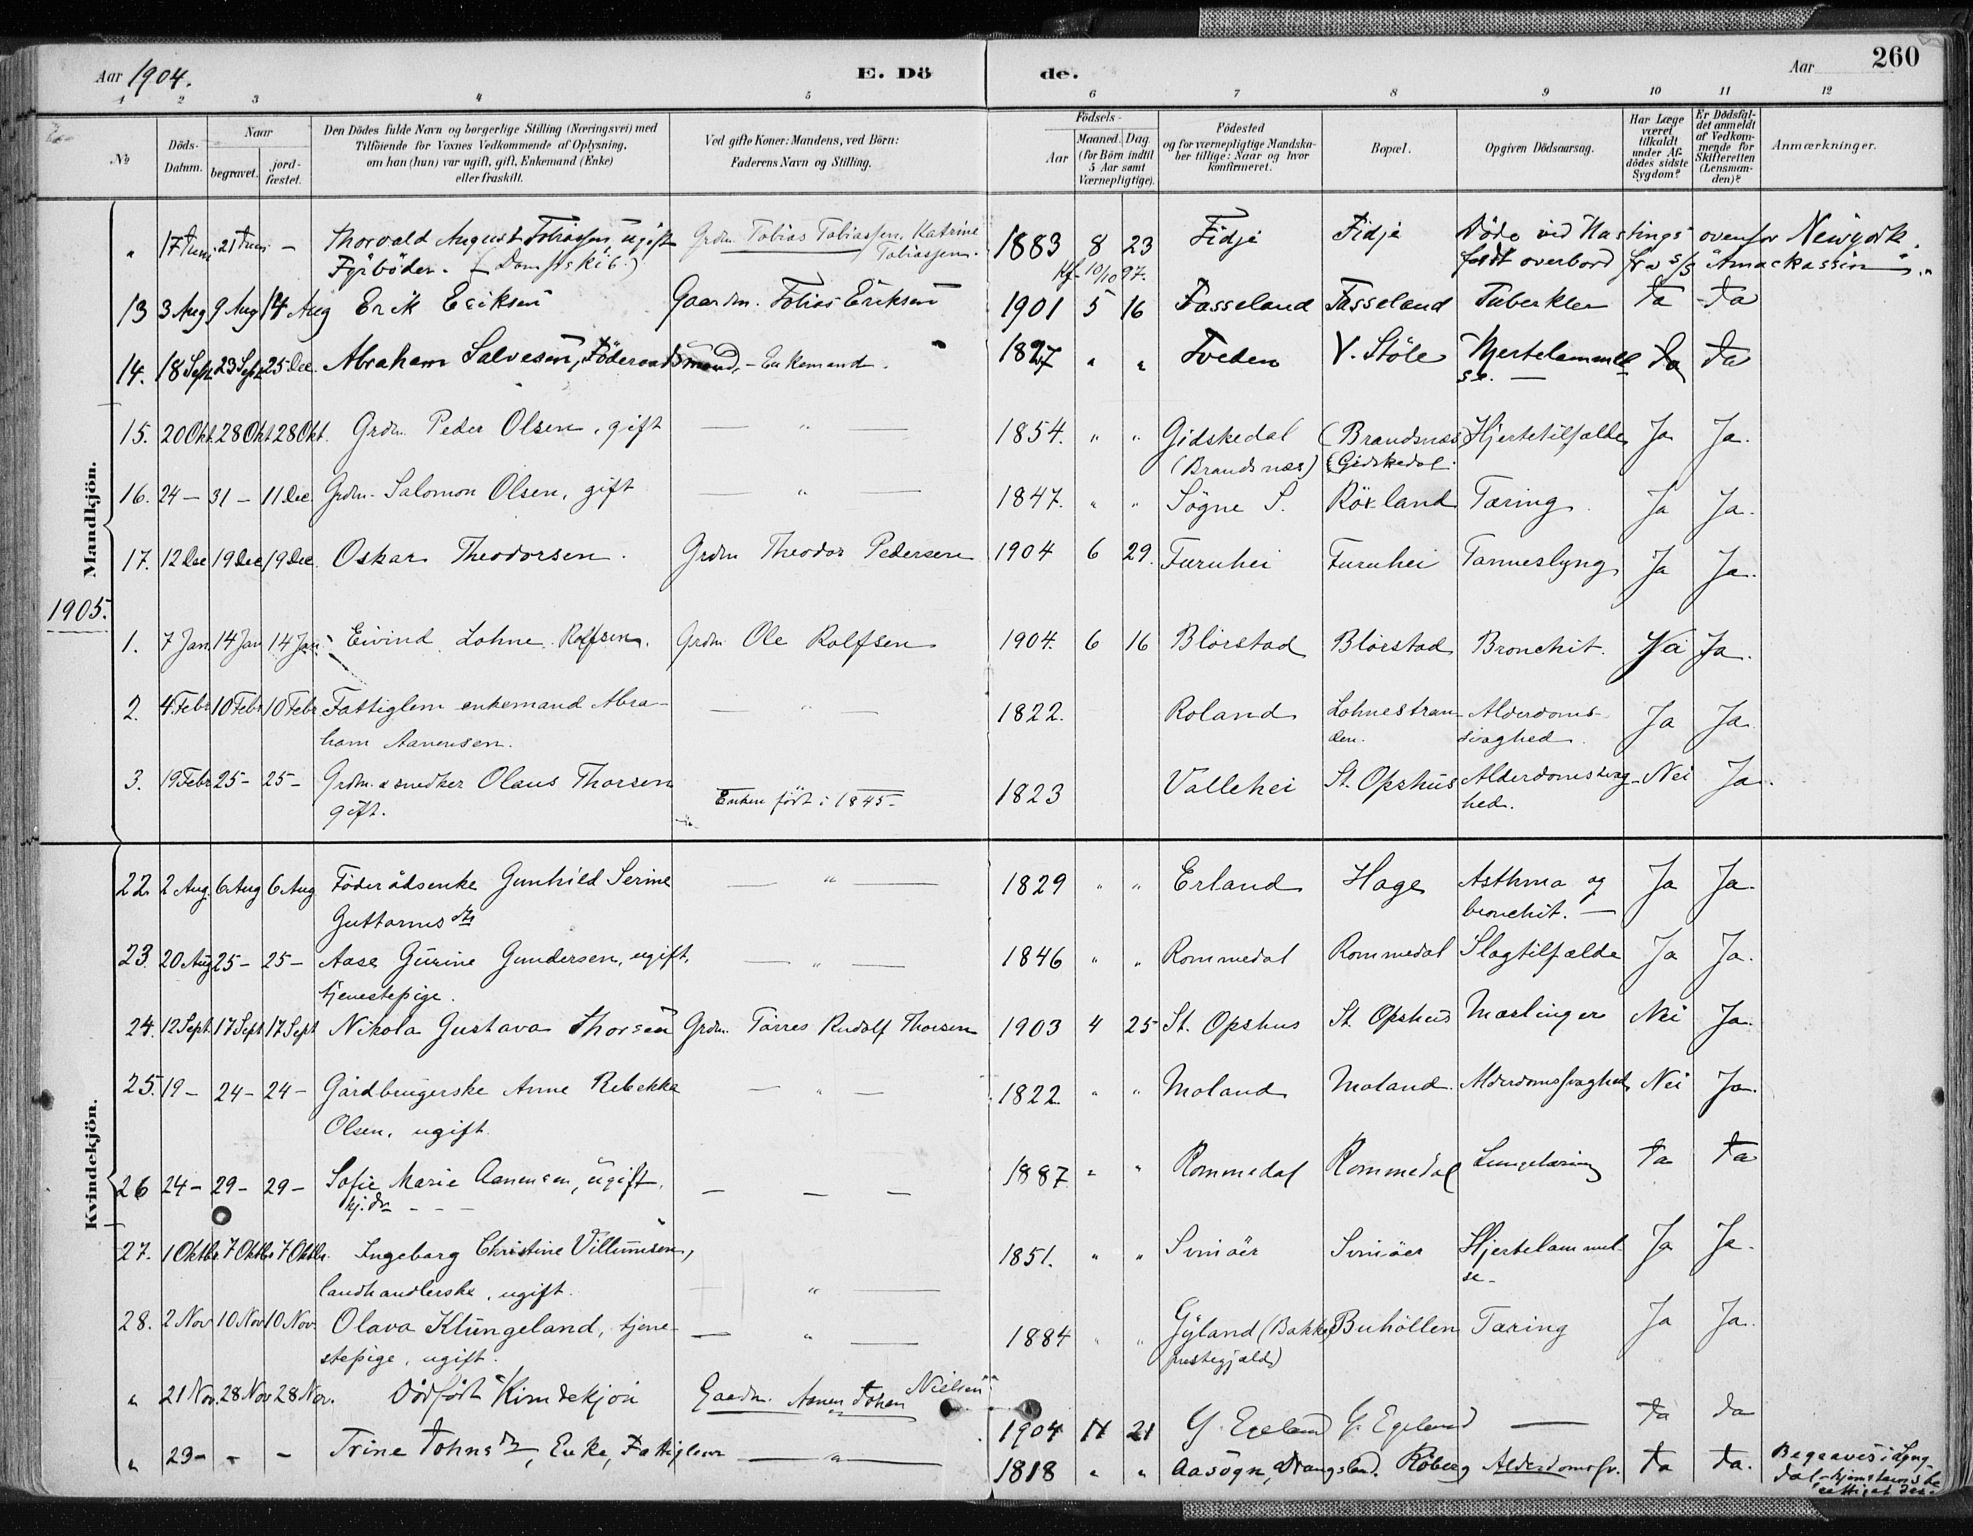 Aar 1904. E. Döde. Aar 260
1 2 3 4 5 6 7 8 9 10 11 12
No
Döds-Datum.
Naar
begravet.
jord-fæstet.
Den Dödes fulde Navn og borgerlige Stilling (Næringsvei) med
Tilföiende for Voxnes Vedkommende af Oplysning,
om han (hun) var ugift, gift, Enkemand (Enke)
eller fraskilt.
Ved gifte Koner: Mandens, ved Börn:
Faderens Navn og Stilling.
Födsels-
Aar
Maaned. Dag
(for Börn indtil
5 Aar samt
Værnepligtige).
Födested
og for værnepligtige Mandska-
ber tillige: Naar og hvor
konfirmeret.
Bopæl.
Opgiven Dödsaarsag.
Har Læge
været
tilkaldt
under Af-
dödes sidste
Sygdom?
Er Dödsfal-
det anmeldt
af Vedkom-
mende for
Skifteretten
(Lensman-
den)?
Anmærkninger.
Mandkjön.
" 17 Juni 21 Juni – Thorvald August Tobiassen, ugift Grdm. Tobias Tobiassen, Katrine 1883 8 23 Fidje Fidje Döde ved Hastings ovenfor Newyork.
Fyrböder. (Dampskib.) Tobiassen. Kf. 10/10 97. faldt overbord fra s/s
13 3 Aug 9 Aug 14 Aug Erik Eriksen Gaardm. Tobias Eriksen 1901 5 16 Fasseland Fasseland Tuberkler Ja Ja
14. 18 Sept 23 Sept 25 Dec Abraham Salvesen, Föderaadsmand, – Enkemand. 1827 " " Tveden V. Stöle Hjertelammel- Ja Ja
se. —
15. 20 Okt. 28 Okt 28 Okt. Grdm. Peder Olsen, gift — " — 1854. " " Gidskedal (Brandsnæs Hjertetilfælde Ja Ja.
(Brandsnæs) Gidskedal.
16. 24 – 31 – 11 Dec. Grdm. Salomon Olsen, gift — " — 1847. " " Sögne S. Röxland Tæring. Ja Ja.
17. 12 Dec 19 Dec 19 Dec. Oskar Theodorsen. Grdm Theodor Pedersen 1904 6 29. Furuhei Furuhei Ja Ja.
1905.
1. 7 Jan. 14 Jan 14 Jan. Eivind Lohne Rolfsen. Grdm Ole Rolfsen 1904. 6 16 Blörstad Blörstad Bronchit. Nei Ja.
2. 4. Febr 10 Febr 10 Febr Fattiglem enkemand Abra- — " — 1822. Roland Lohnestran- Alderdoms- Ja Ja
ham Aanensen. den. svaghed.
3. 19 Febr 25 – 25 – Grdm. & snedker Olaus Thorsen 1823 Vallehei St. Opshus Alderdomssvag- Nei Ja.
gift. Enken født i 1845 – hed.
Kvindekjön.
22. 2 Aug. 6 Aug 6 Aug Föderådsenke Gunhild Serine — " — 1829 " " Erland Hage Asthma og Ja Ja.
Guttormsdtr bronchit. —
23. 20 Aug 25 – 25 – Aase Gurine Gundersen, ugift, — " — 1846 " " Rommedal Rommedal Slagtilfælde Ja Ja.
tjenestepige.
24. 12 Sept. 17 Sept. 17 Sept. Nikola Gustava Thorsen Grdm. Tarres Rudolf Thorsen 1903 4 25 St. Opshus St. Opshus Mæslinger Nei Ja.
25. 19 – 24 – 24 – Gårdbrugerske Anne Rebekka — " — 1822. " " Moland Moland. Alderdomssvaghed Nei Ja.
Olsen, ugift.
26 24 – 29 – 29 – Sofie Marie Aanensen, ugift. — — — 1887 " " Rommedal Rommedal Lungetæring Ja Ja
27. 1 Oktbr 7 Oktbr 7 Oktbr. Ingeborg Christine Villumsen, 1851. " " Svinöer Svinöer Hjertelammel- Ja Ja.
landhandlerske, ugift. " — se –
28. 2 Nov 10 Nov 10 Nov. Olava Klungeland, tjene- — " — 1884 " " Gyland (Bakke Buhöllen Tæring Ja Ja.
stepige, ugift. prestegjæld)
" 21 Nov. 28 Nov 28 Nov. Dödfödt Kvindekjön Gaardm. Aanen Johan Nielsen 1904 11 21 Y. Egeland Y. Egeland — Ja Ja
" 23 – " – Trine Johnsdtr, Enke, Fattiglem — " — 1818 " " Aasogn, Drangsland. Röberg Alderdomssv. Ja Ja. Begraves i Lyng-
dal – hjemstavns-